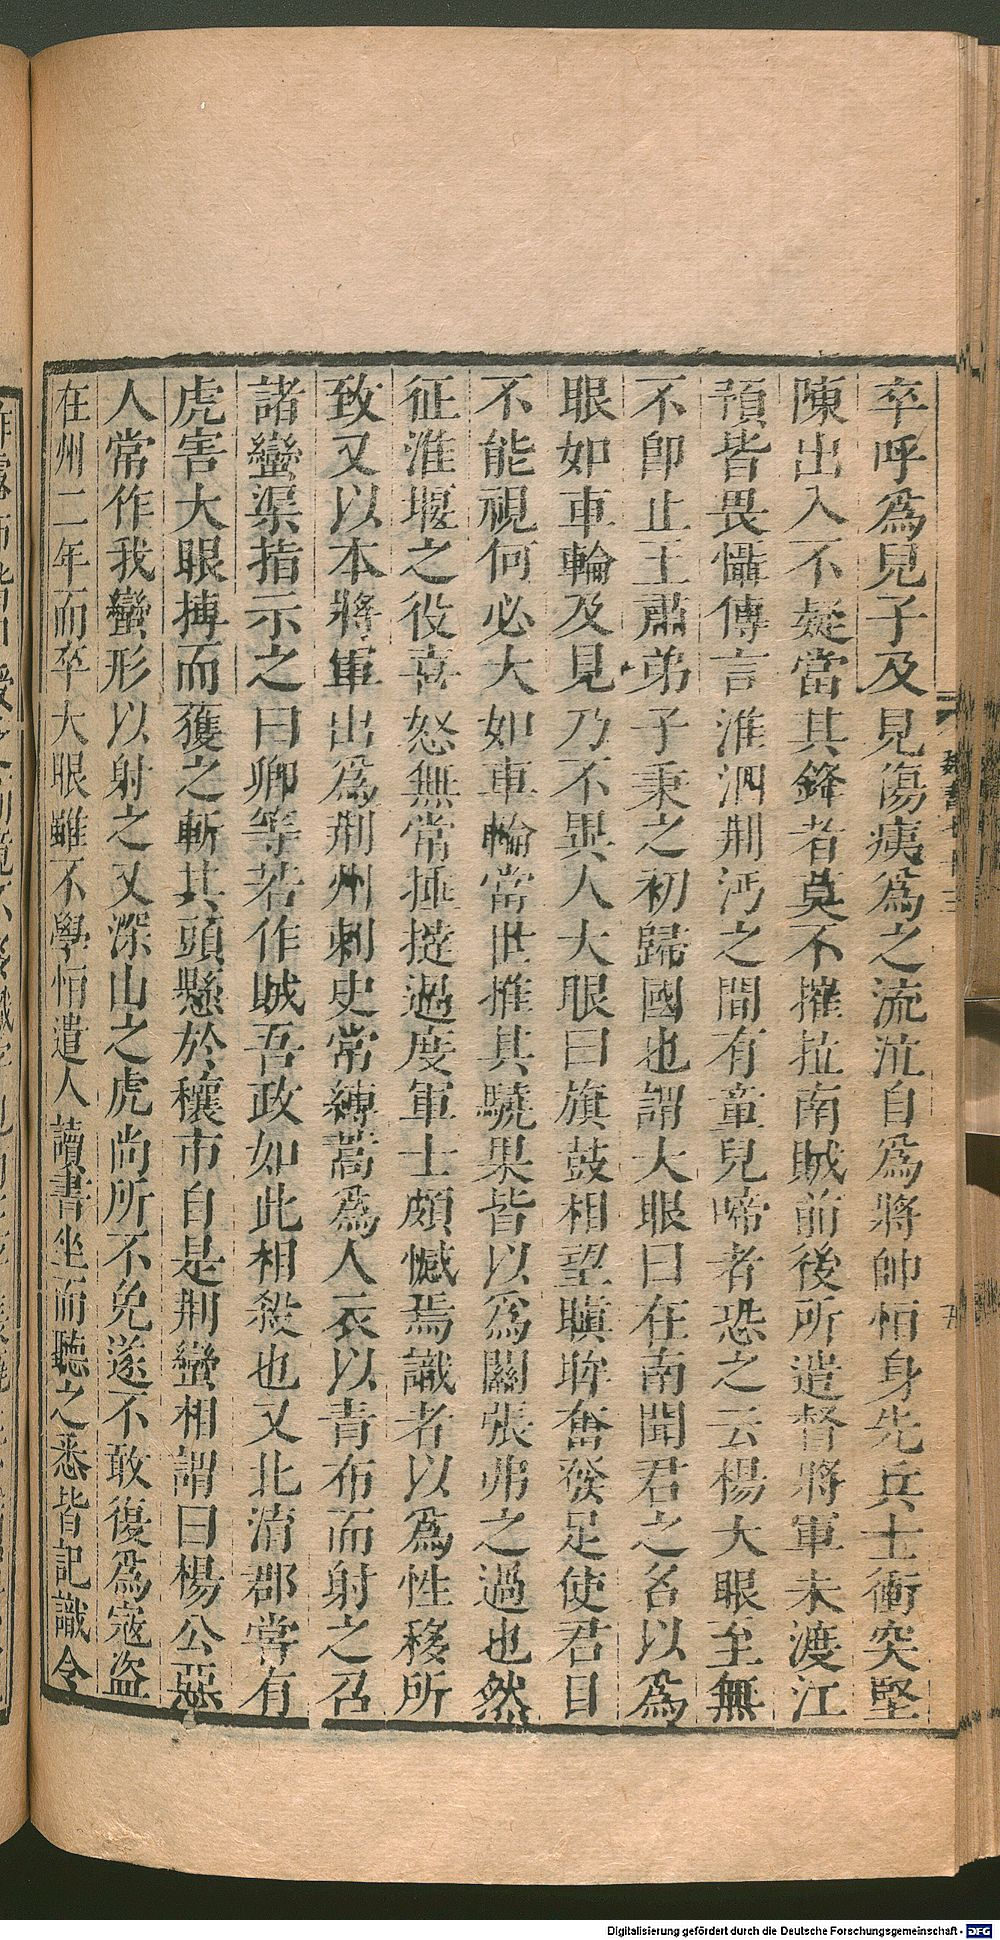 卒呼爲兒子及見傷痍爲之流泣自爲將帥恒身先兵士衝突堅
陳出入不疑當其鋒者莫不摧拉南賊前後所遣督將軍未渡江
預皆畏懾傳言淮泗荆沔之間有童兒啼者恐之云楊大眼至無
不卽止王肅弟子秉之初歸國也謂大眼曰在南聞君之名以爲
眼如車輪及見乃不異人大眼曰旗鼓相望瞋眸奮發足使君目
不能視何必大如車輪當世推其驍果皆以爲關張弗之過也然
征淮堰之役喜怒無常捶撻過度軍士頗憾焉識者以爲性移所
致又以本將軍出爲荆州刺史常縛蒿爲人衣以青布而射之召
諸蠻渠指示之曰卿等若作賊吾政如此相殺也又北淯郡嘗有
虎害大眼搏而獲之斬其頭懸於穰市自是荆蠻相謂曰楊公惡
人常作我蠻形以射之又深山之虎尚所不免遂不敢復爲寇盜
在州二年而卒大眼雖不學恒遣人讀書坐而聽之悉皆記識令
魏書七十三
Digitalisierung gefördert durch die Deutsche Forschungsgemeinschaft - DFG